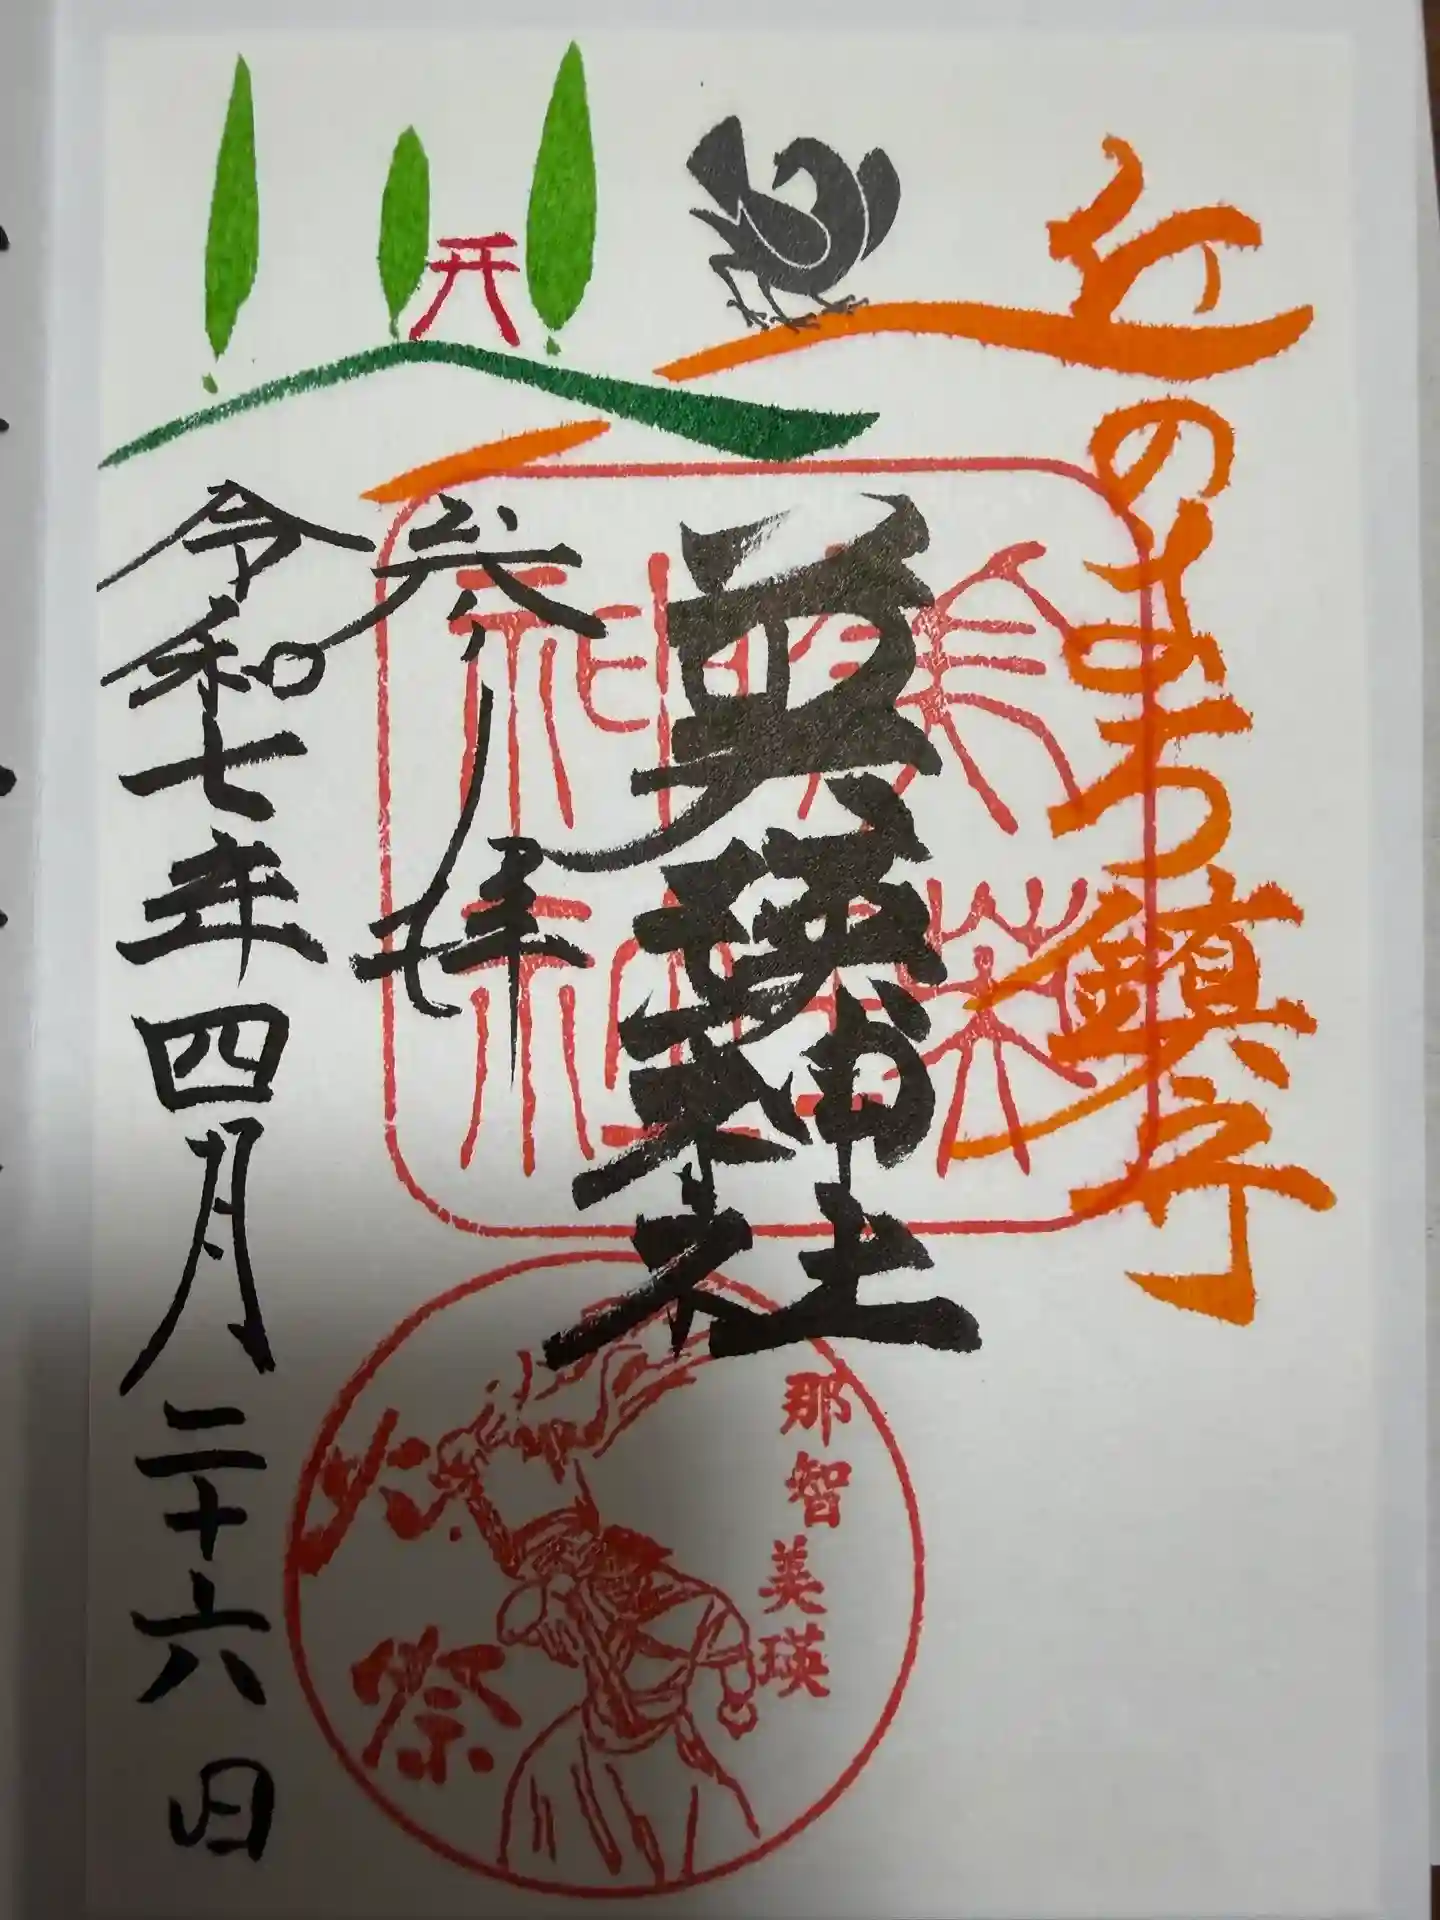 丘のまち鎮守
美瑛神社
参拝
令和七年四月二十六日
美瑛
神社
那智美瑛
火祭